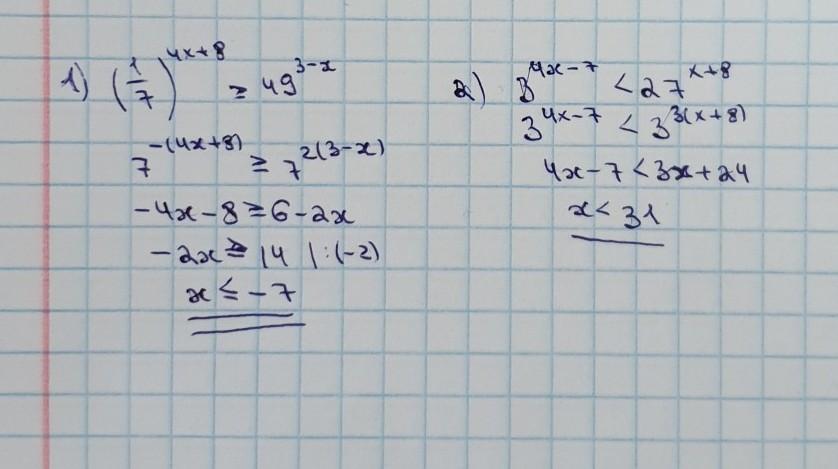 1) (1/7)^(4x+8) ≥ 49^(3-x)
7^(-(4x+8)) ≥ 7^(2(3-x))
-4x-8 ≥ 6-2x
-2x ≥ 14 | :(-2)
x ≤ -7
2) 3^(4x-7) < 27^(x+8)
3^(4x-7) < 3^(3(x+8))
4x-7 < 3x+24
x < 31